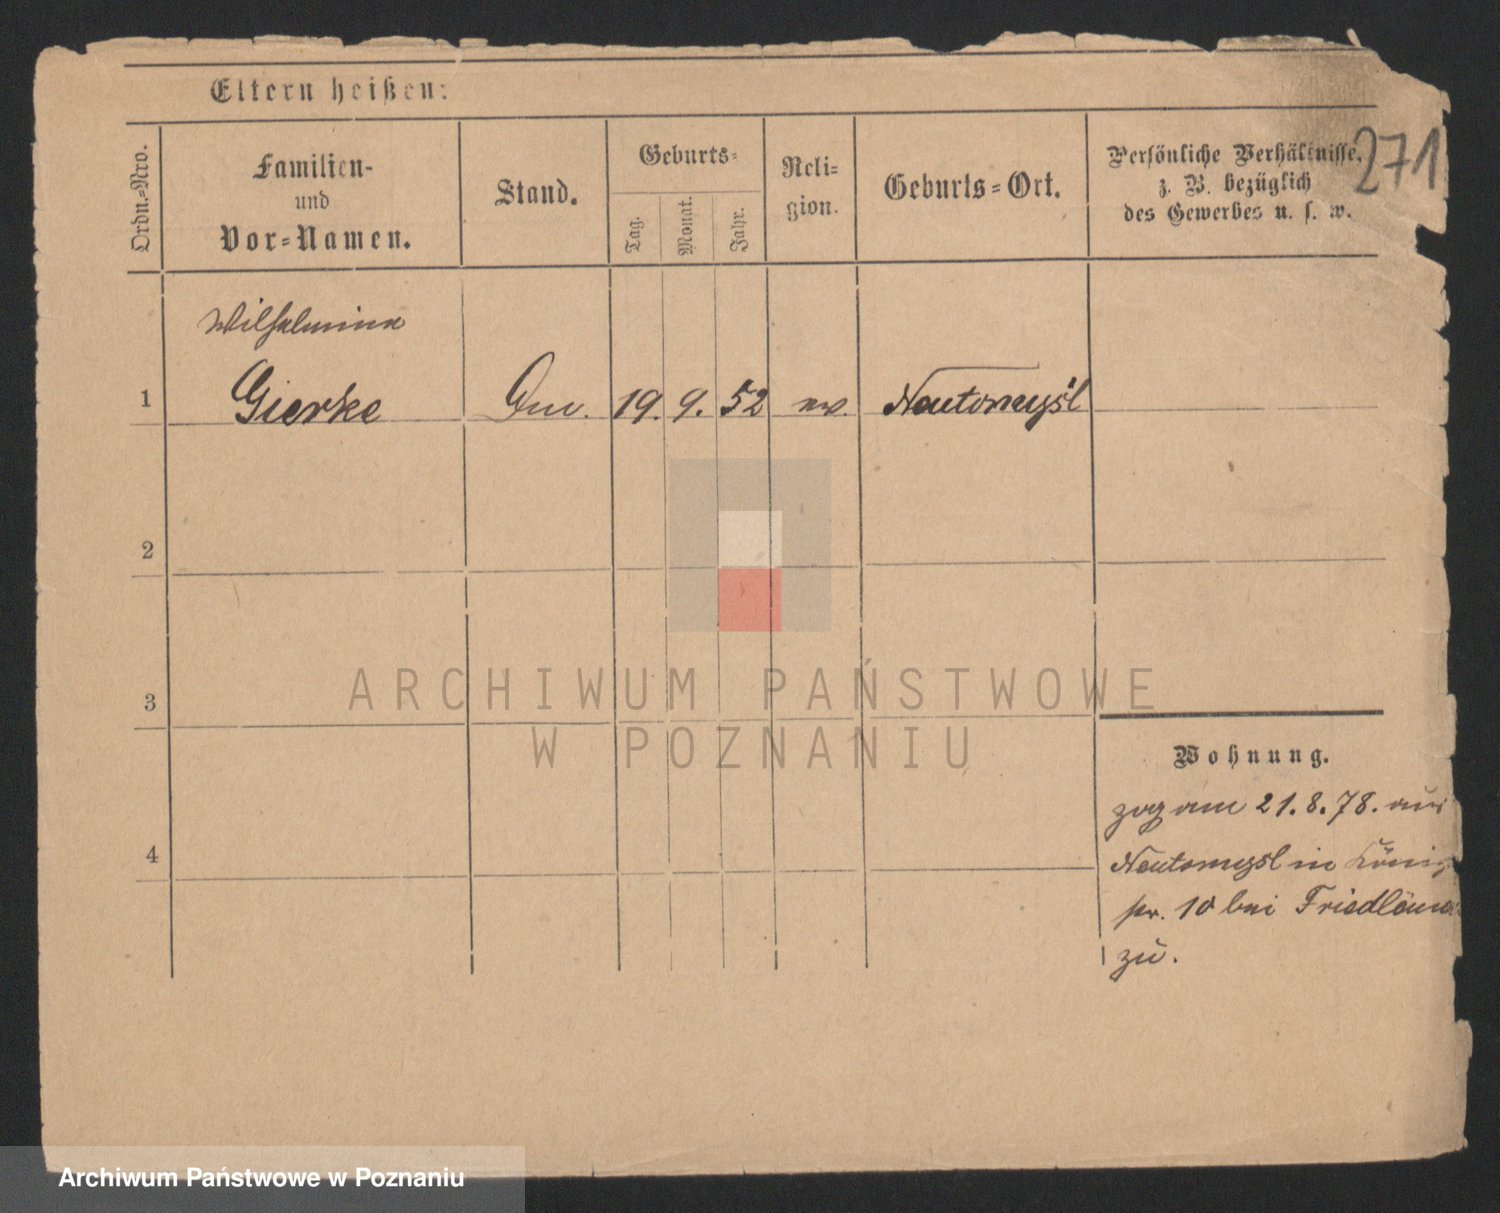 Eltern heißen:
Ordn.=Nro.
Familien-
und
Vor=Namen.
Stand.
Geburts=
Tag.
Monat.
Jahr.
Reli=
gion.
Geburts=Ort.
Persönliche Verhältnisse,
z. B. bezüglich
des Gewerbes u. s. w.
271
Wilhelmina
1 Gierke 19. 9. 52 ev. Neutomysl
2
3
4
Wohnung.
zog am 21.8.78. aus
Neutomysl in König
str. 10 bei Friedländ
zu.
ARCHIWUM PAŃSTWOWE
W POZNANIU
Archiwum Państwowe w Poznaniu